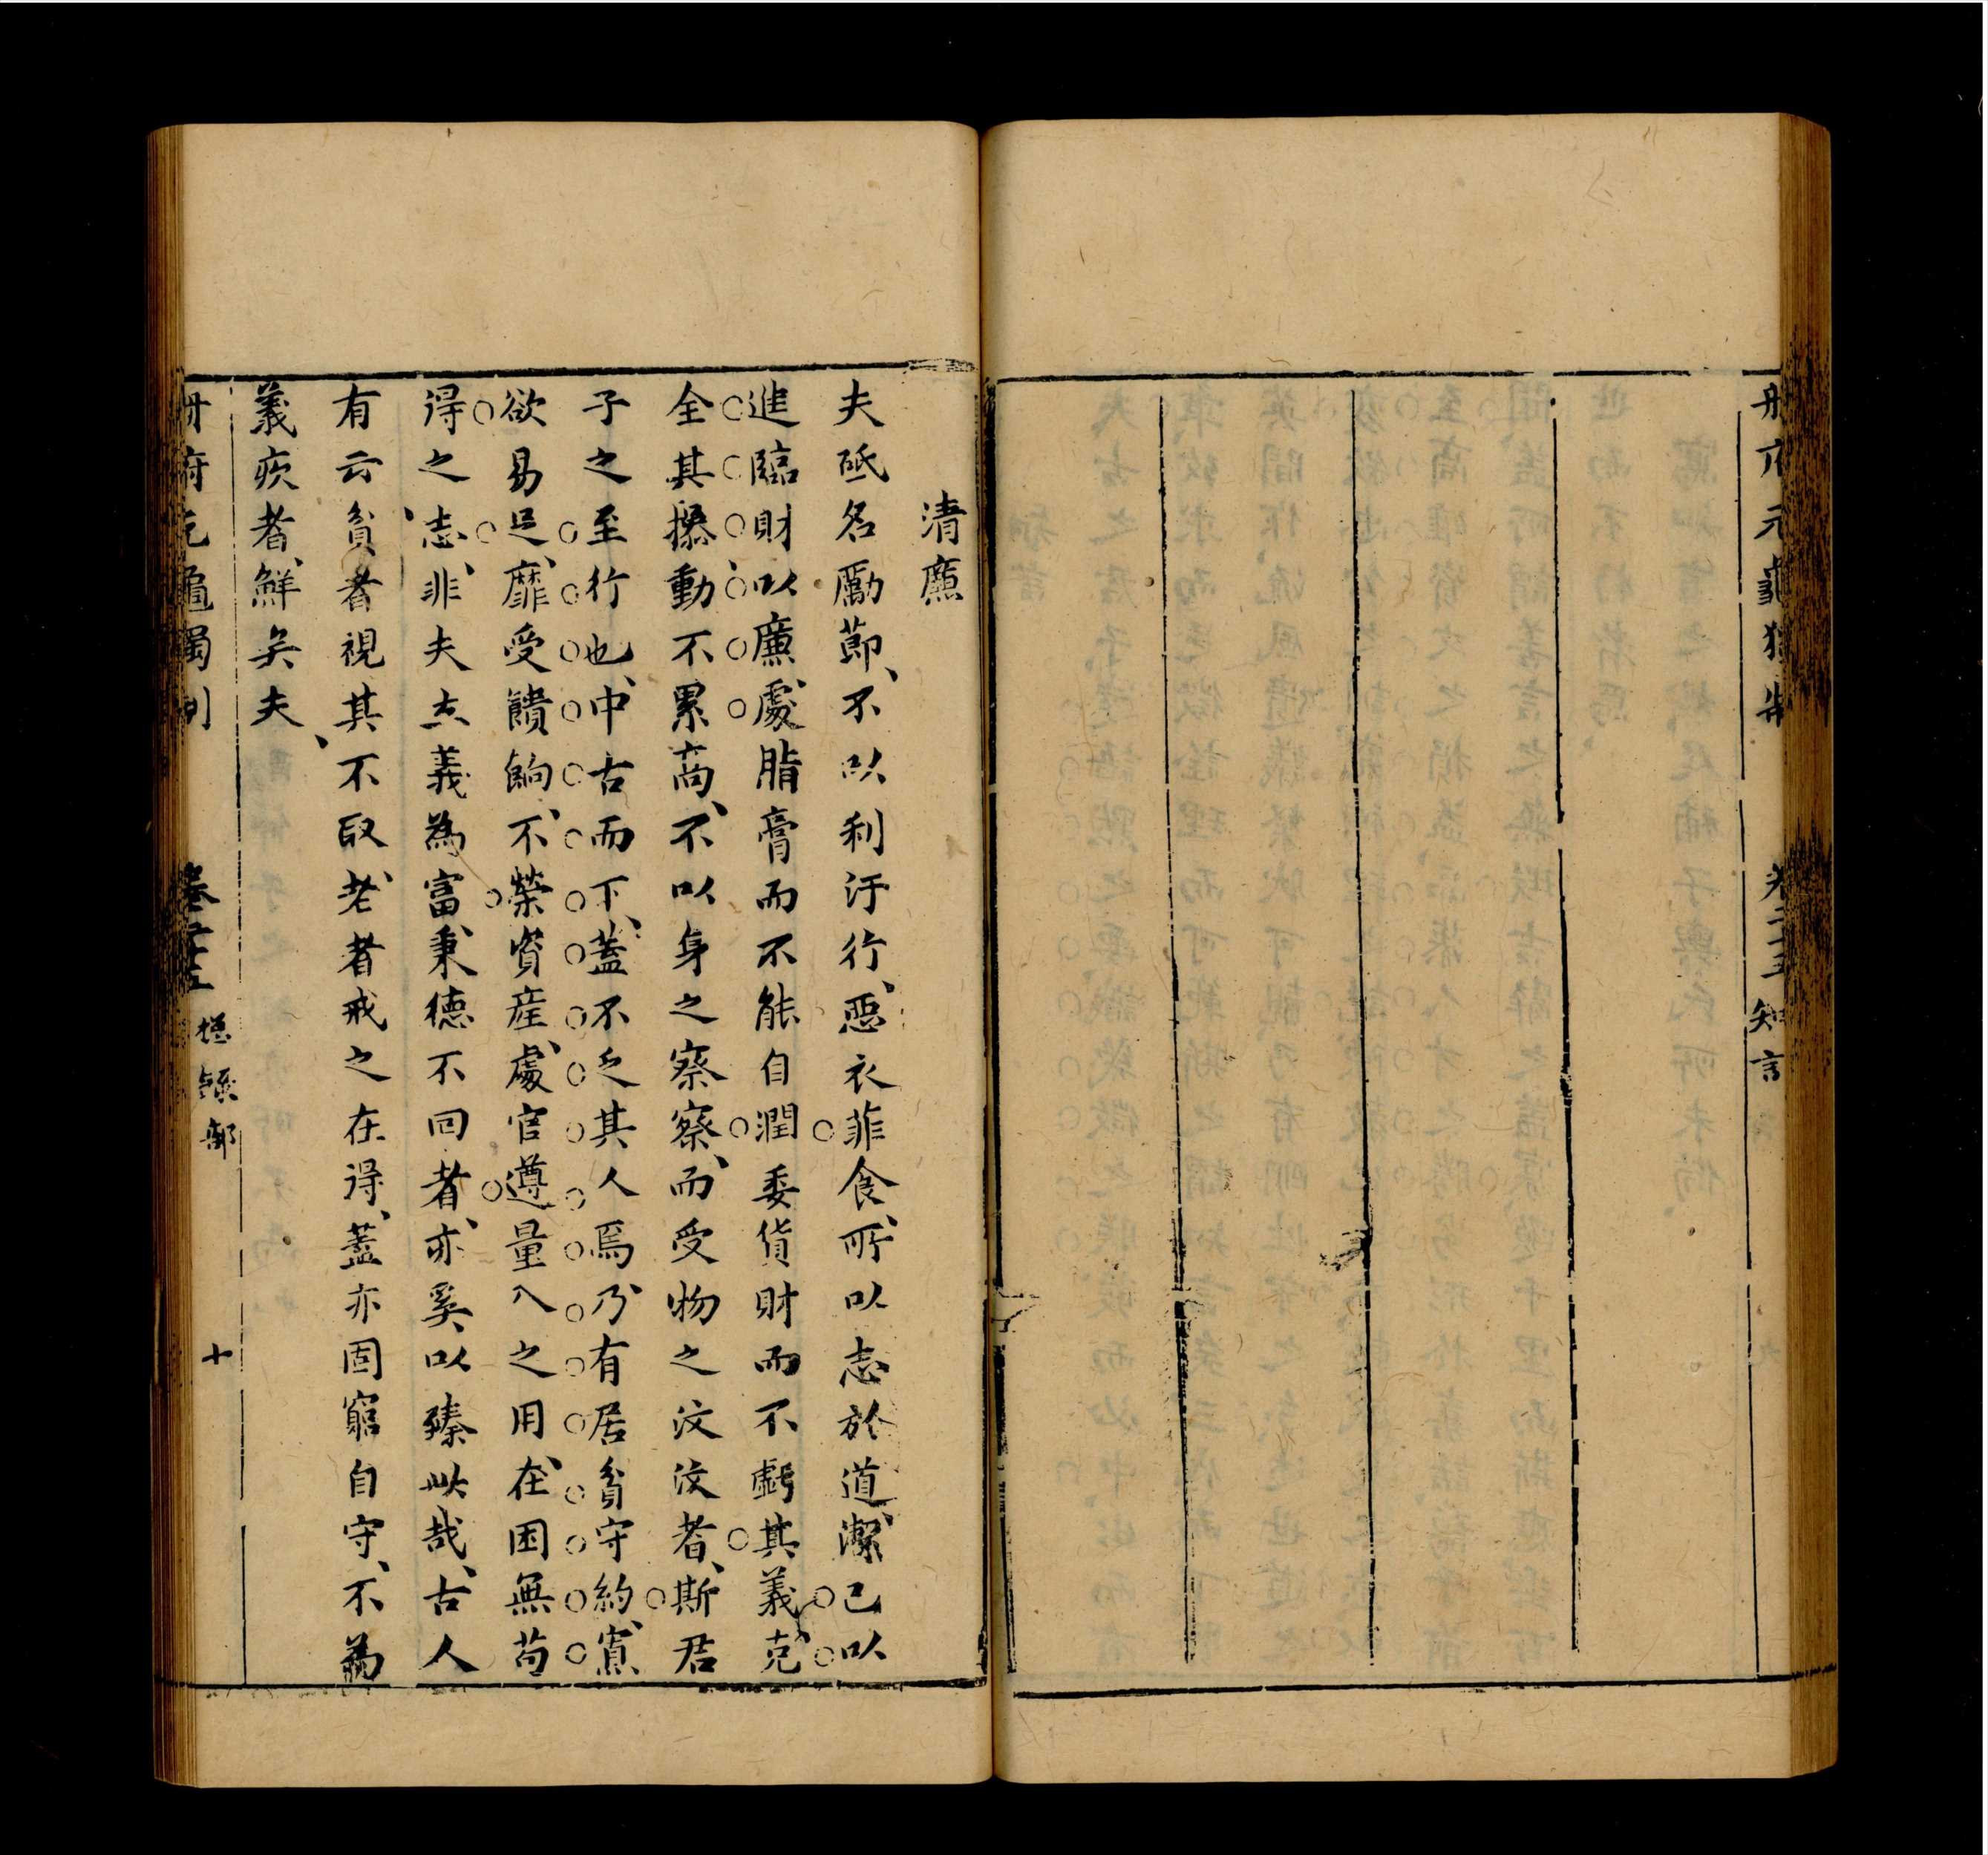 冊府元龜獨制
卷二十五
知言
清廉
夫砥名勵節、不以利汙行、惡衣菲食、所以志於道、潔己以
進、臨財以廉、處脂膏而不能自潤、委貨財而不虧其義、克
全其操、動不累高、不以身之察察、而受物之汶汶者、斯君
子之至行也、中古而下、蓋不乏其人焉、乃有居貧守約、寡
欲易足、靡受饋餉、不榮資產、處官遵量入之用、在困無苟
得之志、非夫立義為富、秉德不回者、亦奚以臻此哉、古人
有云、貧者視其不取、老者戒之在得、蓋亦固窮自守、不為
義疚者、鮮矣夫、
冊府元龜獨制
卷二十五
總錄部
十